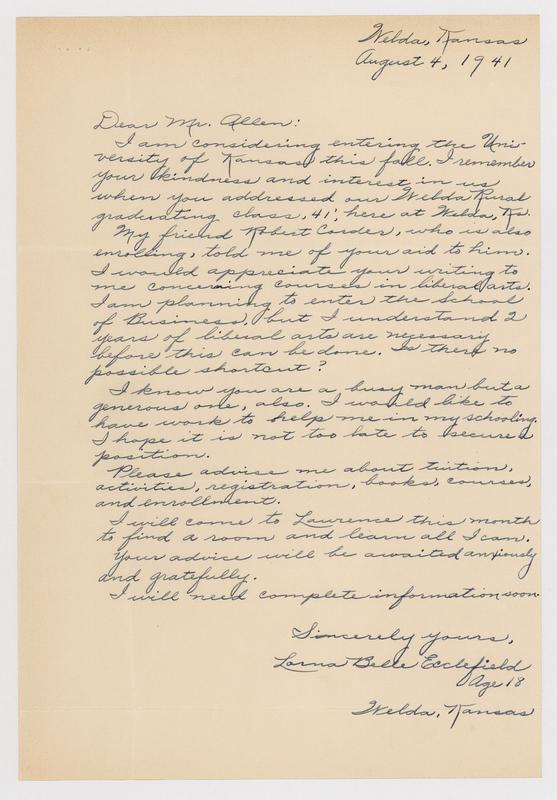 Welda, Kansas
August 4, 1941
Dear Mr. Allen:
I am considering entering the Uni-
versity of Kansas this fall. I remember
your kindness and interest in us
when you addressed our Welda Rural
graduating class, 41', here at Welda, Ks.
My friend Robert Corder, who is also
enrolling, told me of your aid to him.
I would appreciate your writing to
me concerning courses in liberal arts.
I am planning to enter the School
of Business, but I understand 2
years of liberal arts are necessary
before this can be done. Is there no
possible shortcut?
I know you are a busy man but a
generous one, also. I would like to
have work to help me in my schooling.
I hope it is not too late to secure a
position.
Please advise me about tuition,
activities, registration, books, courses,
and enrollment.
I will come to Lawrence this month
to find a room and learn all I can.
Your advice will be awaited anxiously
and gratefully.
I will need complete information soon.
Sincerely yours,
Lorna Belle Ecclefield
Age 18
Welda, Kansas